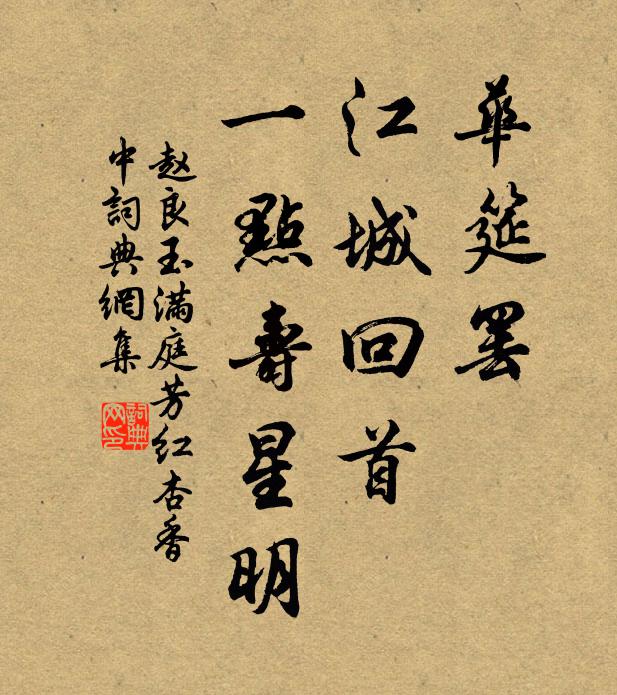 華筵罢
江城回首
一點壽星明
赵良玉满庭芳红杏香
中詞典網集
詞典网印